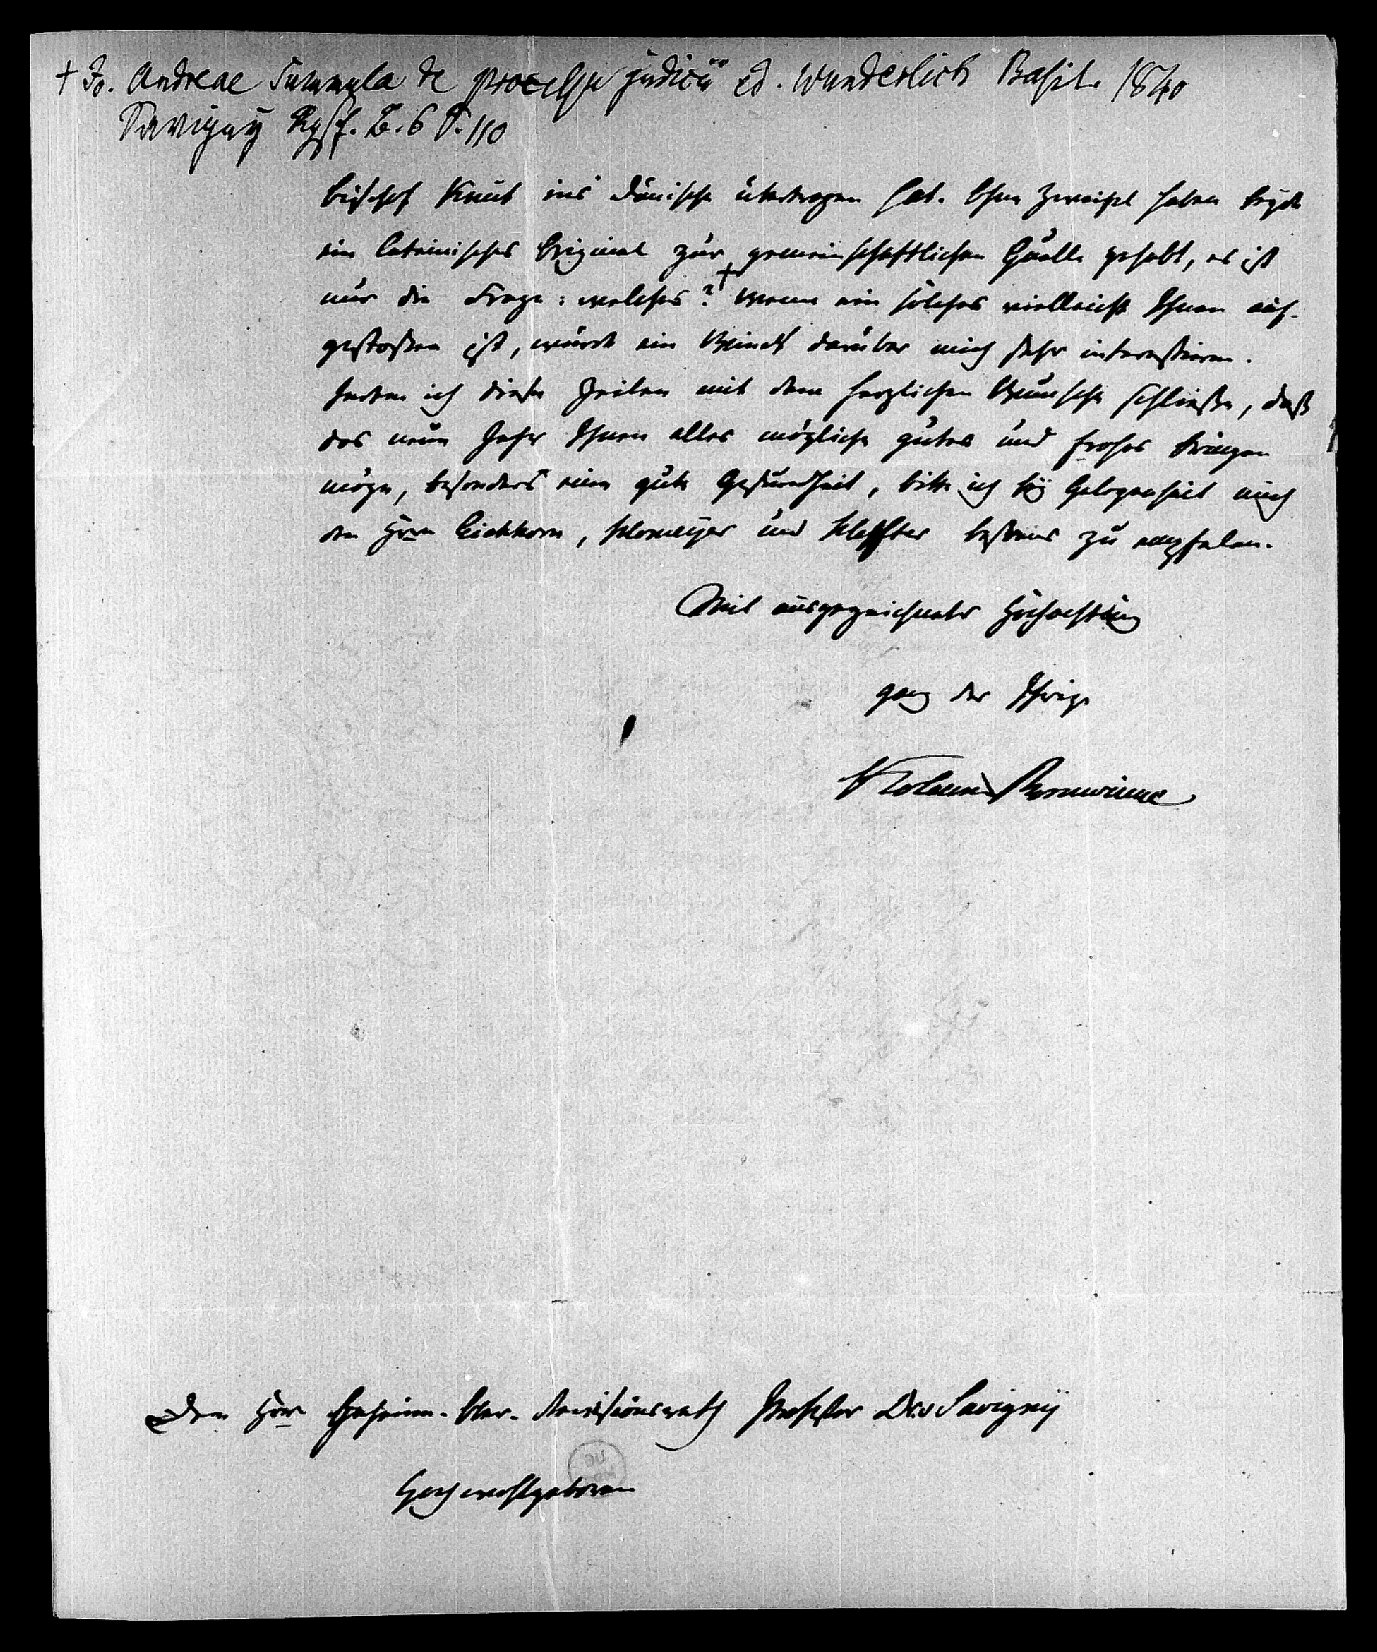 + Jo. Andreae Summula de processu judicii ed. Wunderlich Basil. 1840
Savigny Rgsch. B. 6 S. 110
bischof Knut ins Dänische übertragen hat. Ohne Zweifel haben beyde
ein lateinisches Original zur gemeinschaftlichen Quelle gehabt, es ist
nur die Frage: welches?+ Wenn ein solches vielleicht Ihnen auf-
gestoßen ist, würde ein Wink darüber mich sehr interessiren.
Indem ich diese Zeilen mit dem herzlichen Wunsche schließe, daß
das neue Jahr Ihnen alles mögliche gutes und frohes bringen
möge, besonders eine gute Gesundheit, bitte ich bey Gelegenheit mich
den Hrrn Eichhorn, Homeyer und Heffter bestens zu empfelen.
Mit ausgezeichneter Hochachtung
ganz der Ihrige
Kolderup Rosenvinge
Den Hrrn Geheim. Ober. Revisionsrath Professor von Savigny
Hochwohlgeboren